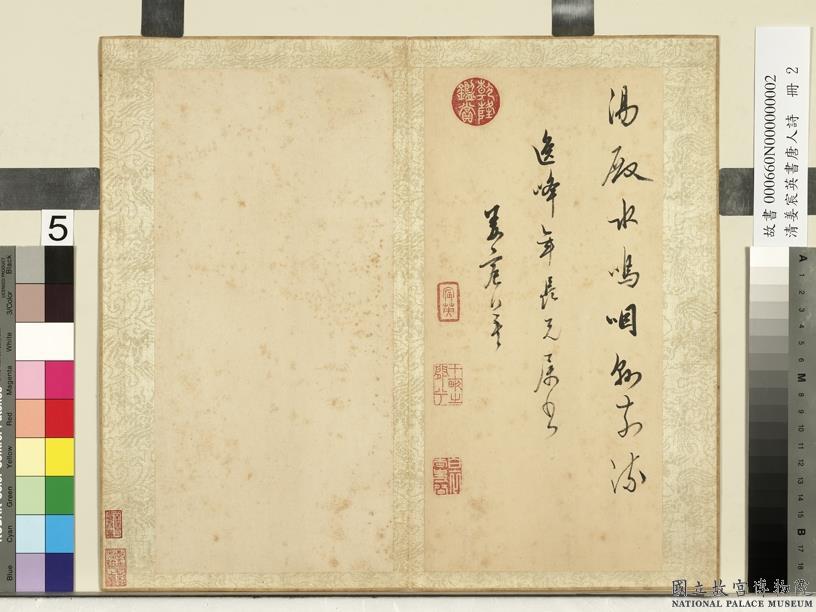 湯殿水嗚咽勿東流
逸峰年長兄屬書
姜宸英
乾隆鑑賞
宸英
故書 000660N000000002
清姜宸英書唐人詩 冊 2
5
Black
3/Color
White
Magenta
Red
Yellow
Green
Cyan
Blue
A 1 2 3 4 5 6 M 8 9 10 11 12 13 14 15 B 17 18
國立故宮博物院
NATIONAL PALACE MUSEUM